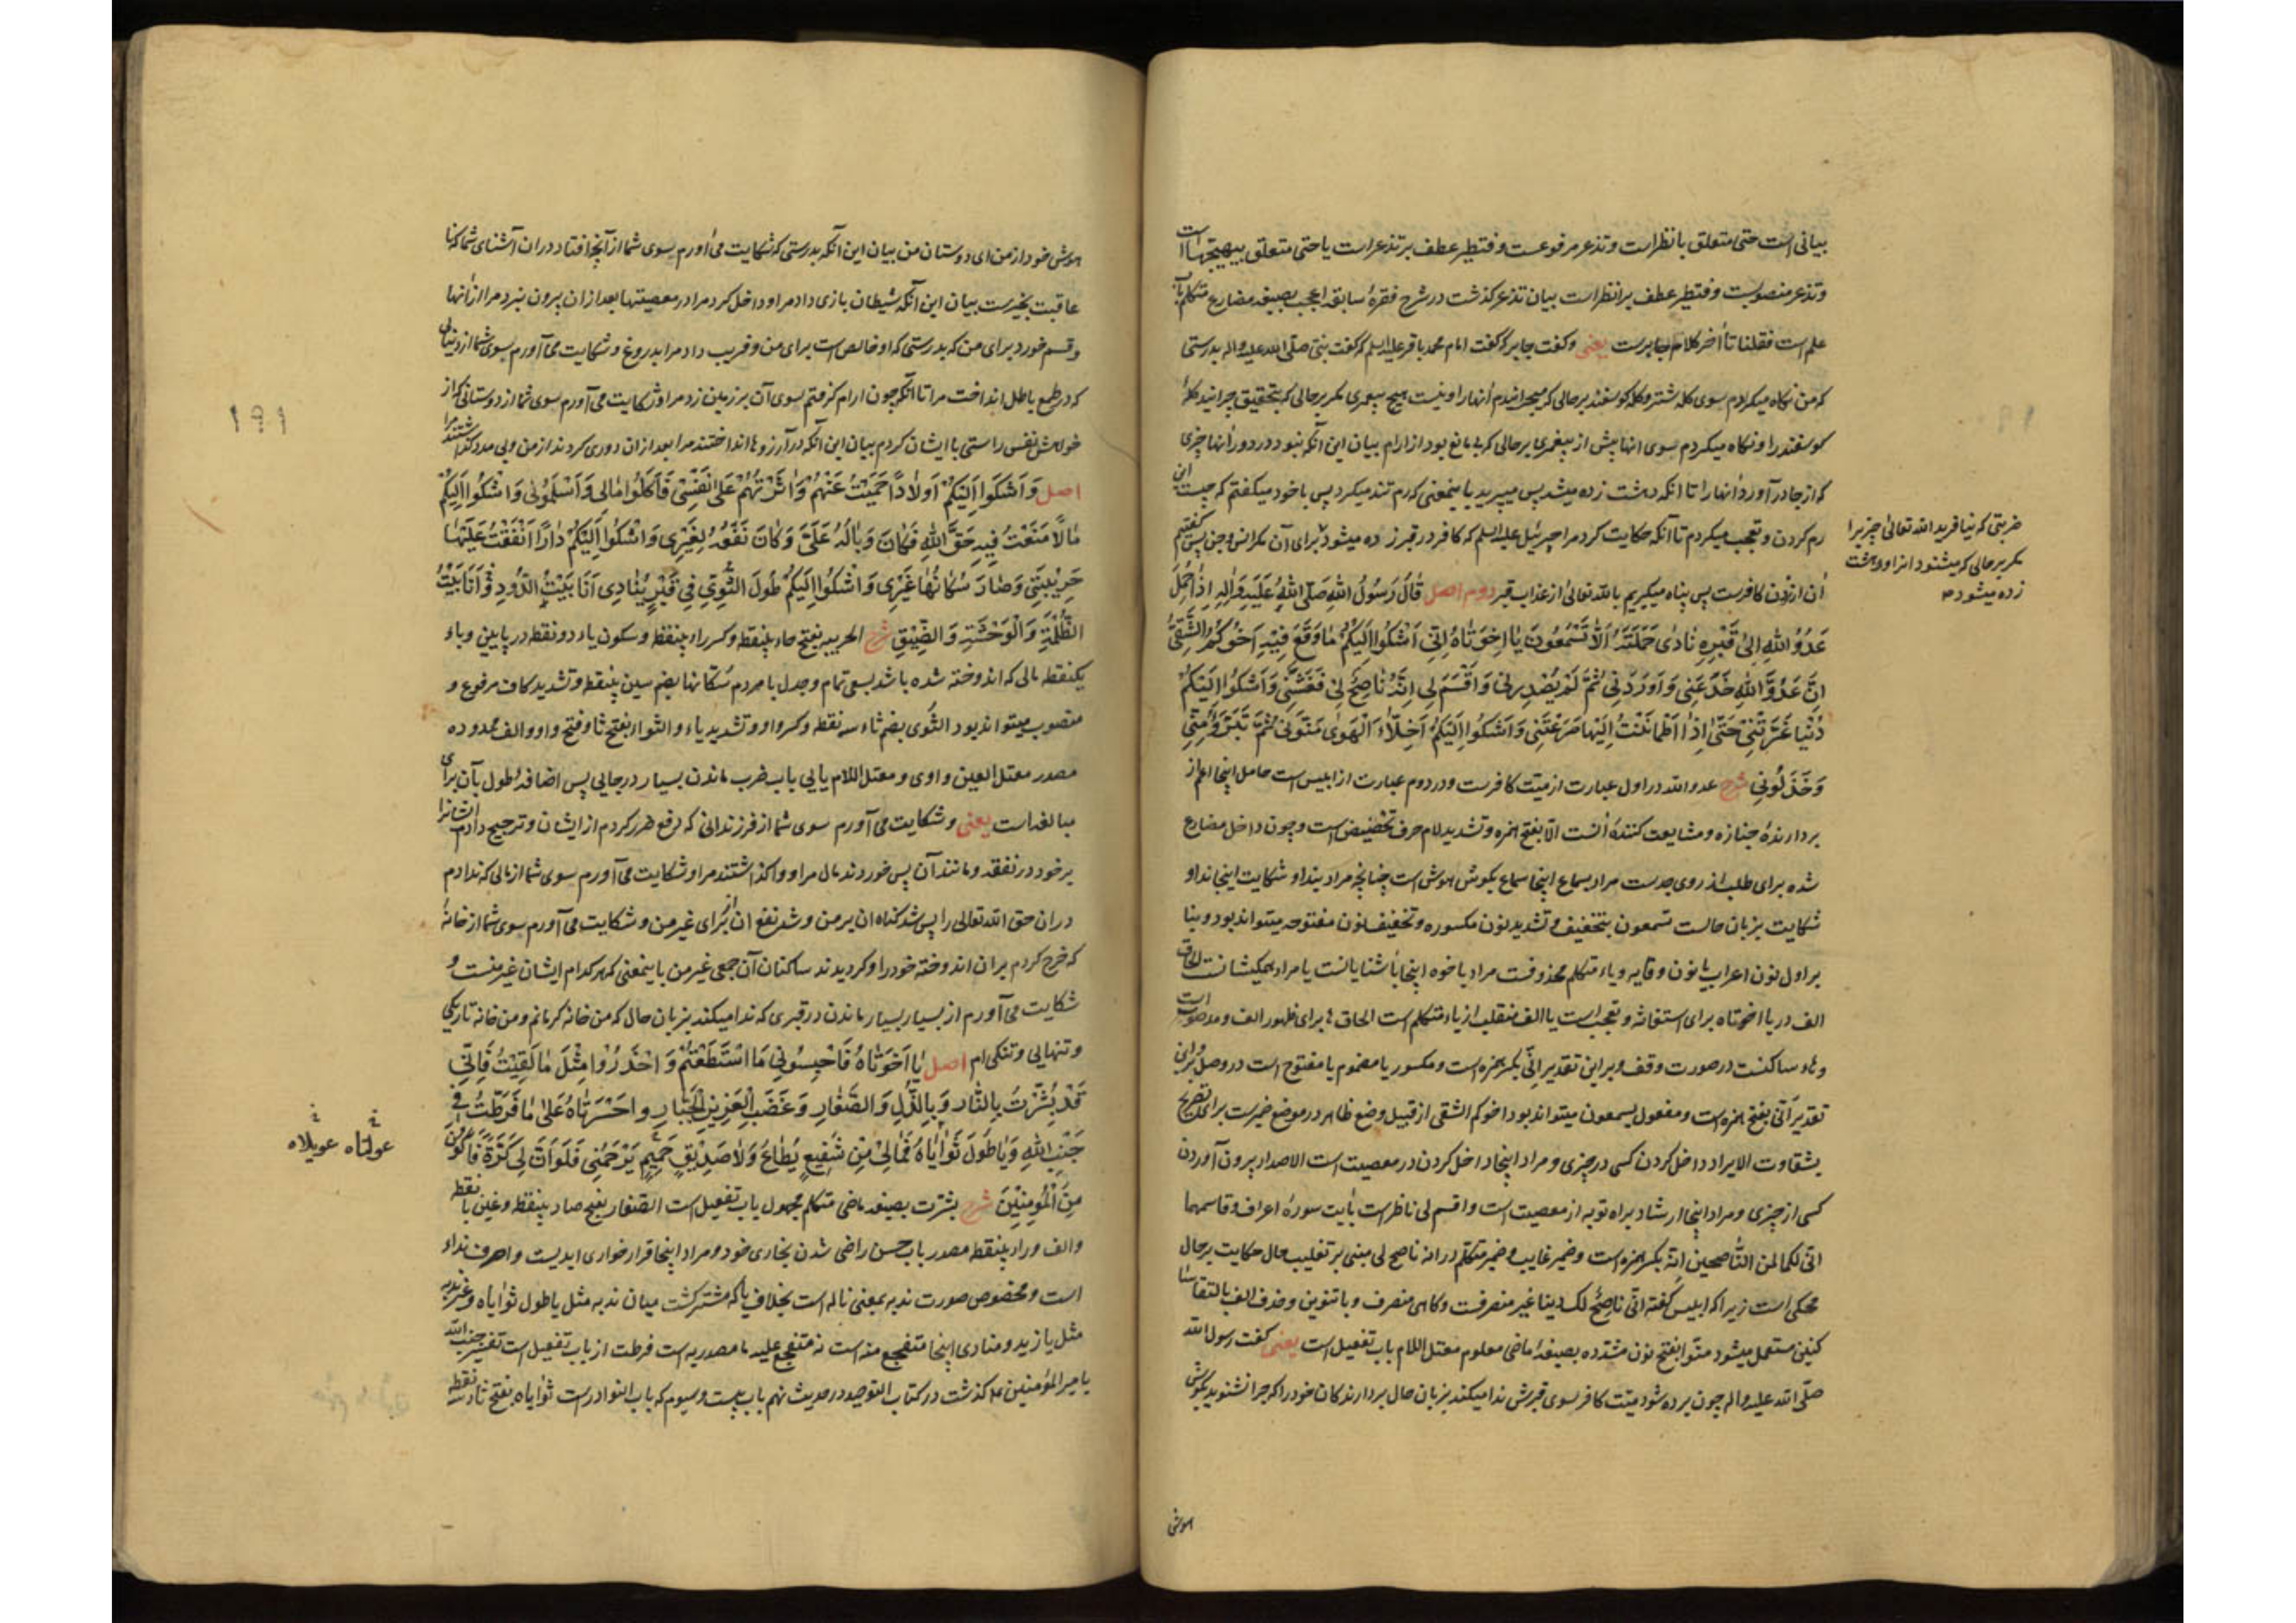 بیانی است حتی متعلق بانظر است وتذعر مرفوعست وفتطیر عطف بر تذعر است یا حتی متعلق بیهیجها است
وتذعر منصوبست وفتطیر عطف بر انظر است بیان تذعر کذشت در شرح فقرهٔ سابقه اعجب بصیغه مضارع متکلم باب
علم است فقلنا تا آخر کلام جابرست یعنی وکفت جابر که کفت امام محمد باقر علیه السلم که کفت نبی صلّی الله علیه واله بدرستی
که من نکاه میکردم سوی کله شتر وکله کوسفند بر حالی که میچرانیدم آنهارا ونیست هیچ پیغمبری مکر بر حالی که بتحقیق چرانیده کلهٔ
کوسفند را ونکاه میکردم سوی انها پیش از پیغمبری بر حالی که بی مانع بود از ارام بیان این آنکه نبود در دور آنها چیزی
که از جا در آورد انهارا تا انکه دهشت زده میشد پس میپرید باینمعنی که رم تند میکرد پس با خود میکفتم که چیست این
رم کردن وتعجب میکردم تا آنکه حکایت کرد مرا جبرئیل علیه السلم که کافر در قبر زده میشود برای آن مکر انس وجن پس کفتیم
آن از زدن کافرست پس پناه میکیریم بالله تعالی از عذاب قبر دوم اصل قَالَ رَسُولُ اللهِ صَلَّى اللهُ عَلَيْهِ وَاٰلِهِ اِذَا حُمِلَ
عَدُوُّ اللهِ اِلىٰ قَبْرِهِ نَادٰى حَمَلَتَهُ اَلَا تَسْمَعُونَ يَا اِخْوَتَاهُ اِنِّي اَشْكُوا اِلَيْكُمْ مَا وَقَعَ فِيْهِ اَخُوكُمُ الشَّقِىُّ
اِنَّ عَدُوَّ اللهِ خَدَعَنِى وَاَوْرَدَنِى ثُمَّ لَمْ يُصْدِرْنِى وَاَقْسَمَ لِى اِنَّهُ نَاصِحٌ لِى فَغَشَّنِى وَاَشْكُوا اِلَيْكُمْ
دُنْيَا غَرَّتْنِى حَتّٰى اِذَا اطْمَأْنَنْتُ اِلَيْهَا صَرَعَتْنِى وَاَشْكُوا اِلَيْكُمْ اَخِلَّاءَ الْهَوٰى مَنَّوْنِى ثُمَّ تَبَرَّؤُا مِنِّى
وَخَذَلُونِى شرح عدو الله در اول عبارت از میّت کافرست ودر دوم عبارت از ابلیس است حامل اینجا اعم از
بردارندهٔ جنازه ومشایعت کنندهٔ انست الا بفتح همزه وتشدید لام حرف تحضیض است وچون داخل مضارع
شده برای طلب از روی جدست مراد بسماع اینجا سماع بکوش هوش است چنانچه مراد بنداو شکایت اینجا نداو
شکایت بزبان حالست تسمعون بتخفیف وتشدید نون مکسوره وتخفیف نون مفتوحه میتواند بود وبنا
بر اول نون اعراب یا نون وقایه ویاء متکلم محذوفست مراد باخوه اینجا آشنایانست یا مراد همکیشانست الحاق
الف در یا اخوتاه برای استغاثه وتعجب است یا الف منقلب از یاء متکلم است الحاق ها برای ظهور الف ومد صوت است
وهاء ساکنست در صورت وقف وبر این تقدیر اِنّی بکسر همزه است ومکسور یا مضموم یا مفتوح است در وصل وبر این
تقدیر اَنّی بفتح همزه است ومفعول یسمعون میتواند بود اخوکم الشقی از قبیل وضع ظاهر در موضع ضمیرست برای تصریح
بشقاوت الایراد داخل کردن کسی در چیزی ومراد اینجا داخل کردن در معصیت است الاصدار بیرون آوردن
کسی از چیزی ومراد اینجا ارشاد براه توبه از معصیت است واقسم لی ناظر است بآیت سورهٔ اعراف وقاسمهما
انّی لکما لمن النّاصحین اِنّه بکسر همزه است وضمیر غایب وضمیر متکلم در انه ناصح لی مبنی بر تغلیب حال حکایت بر حال
محکی است زیرا که ابلیس کفته انّی ناصحٌ لک دنیا غیر منصرفست وکاهی منصرف وبا تنوین وحذف الف بالتقاء سا
کنین مستعمل میشود منّوا بفتح نون مشدده بصیغهٔ ماضی معلوم معتل اللام باب تفعیل است یعنی کفت رسول الله
صلّی الله علیه واله چون برده شود میّت کافر سوی قبرش ندا میکند بزبان حال بردارندکان خودرا که چرا نشنوید بکوش
هوش
ضربتی که نیافرید الله تعالیٰ چیزیرا
مکر بر حالی که میشنود انرا ودهشت
زده میشود
هوش خود از من ای دوستان من بیان این آنکه بدرستی که شکایت می آورم سوی شما از آنچه افتاد در ان آشنای شما که نا
عاقبت بخیرست بیان این آنکه شیطان بازی داد مرا وداخل کرد مرا در معصیتها بعد از ان بیرون نبرد مرا از آنها
وقسم خورد برای من که بدرستی که او خالص است برای من وفریب داد مرا بدروغ وشکایت می آورم سوی شما از دنیائی
که در طمع باطل انداخت مرا تا آنکه چون ارام کرفتم سوی آن بر زمین زد مرا وشکایت می آورم سوی شما از دوستانی که از
خواهش نفس راستی با ایشان کردم بیان این آنکه در آرزوها انداختند مرا بعد از ان دوری کردند از من وبی مدد کذاشتند مرا
اصل وَاَشْكُوا اِلَيْكُمْ اَوْلَادًا حَمَيْتُ عَنْهُمْ وَاٰثَرْتُهُمْ عَلىٰ نَفْسِى فَاَكَلُوا مَالِى وَاَسْلَمُونِى وَاَشْكُوا اِلَيْكُمْ
مَالًا مَنَعْتُ فِيهِ حَقَّ اللهِ فَكَانَ وَبَالُهُ عَلَىَّ وَكَانَ نَفْعُهُ لِغَيْرِى وَاَشْكُوا اِلَيْكُمْ دَارًا اَنْفَقْتُ عَلَيْهَا
حَرِيْبَتِى وَصَارَ سُكَّانُهَا غَيْرِى وَاَشْكُوا اِلَيْكُمْ طُولَ الثُّوِىِّ فِى قَبْرٍ يُنَادِى اَنَا بَيْتُ الدُّودِ وَاَنَا بَيْتُ
الظُّلْمَةِ وَالْوَحْشَةِ وَالضِّيْقِ شرح الحریبه بفتح حاء بینقطه وکسر راء بینقطه وسکون یاء دو نقطه در پایین وباء
یکنقطه مالی که اندوخته شده باشد بسعی تمام وجدل با مردم سُکّانها بضم سین بینقطه وتشدید کاف مرفوع و
منصوب میتواند بود الثُوی بضم ثاء سه نقطه وکسر واو وتشدید یاء والثواء بفتح ثا وفتح واو والف ممدوده
مصدر معتل العین واوی ومعتل اللام یایی باب ضرب ماندن بسیار در جایی پس اضافهٔ طول بآن برای
مبالغه است یعنی وشکایت می آورم سوی شما از فرزندانی که دفع ضرر کردم از ایشان وترجیح دادم ایشانرا
بر خود در نفقه ومانند آن پس خوردند مال مرا وواکذاشتند مرا وشکایت می آورم سوی شما از مالی که ندادم
در ان حق الله تعالی را پس شد کناه ان بر من وشد نفع ان برای غیر من وشکایت می آورم سوی شما از خانهٔ
که خرج کردم بر ان اندوخته خودرا وکردیدند ساکنان آن جمعی غیر من باینمعنی که هر کدام ایشان غیر منست و
شکایت می آورم از بسیار بسیار ماندن در قبری که ندا میکند بزبان حال که من خانه کرمانم ومن خانه تاریکی
وتنهایی وتنکی ام اصل يَا اِخْوَتَاهُ فَاحْبِسُونِى مَا اسْتَطَعْتُمْ وَاحْذَرُوا مِثْلَ مَا لَقِيْتُ فَاِنِّى
قَدْ بُشِّرْتُ بِالنَّارِ وَبِالذُّلِّ وَالصَّغَارِ وَغَضَبِ الْعَزِيزِ الْجَبَّارِ وا حَسْرَتَاهُ عَلىٰ مَا فَرَّطْتُ فِى
جَنْبِ اللهِ وَيَا طُولَ ثَوَايَاهُ فَمَا لِىَ مِنْ شَفِيعٍ يُطَاعُ وَلَا صَدِيْقٍ حَمِيمٍ يَرْحَمُنِى فَلَوْ اَنَّ لِى كَرَّةً فَاَكُونَ
مِنَ الْمُؤْمِنِيْنَ شرح بشّرت بصیغه ماضی متکلم مجهول باب تفعیل است الصّغار بفتح صاد بینقطه وغین بانقطه
والف وراء بینقطه مصدر باب حسن راضی شدن بخاری خود ومراد اینجا قرار خواری ابدیست واحرف نداء
است ومخصوص صورت ندبه بمعنی ناله است بخلاف یا که مشترکست میان ندبه مثل یا طول ثوایاه وغیر ندبه
مثل یا زید ومنادی اینجا متفجع منه است نه متفجع علیه ما مصدریه است فرطت از باب تفعیل است تفسیر جنب الله
بامیر المؤمنین ع کذشت در کتاب التوحید در حدیث نهم باب بیست وسیوم که باب النوادرست ثوایاه بفتح ثاء سه نقطه
عولتاه عویلاه
۱۹۱